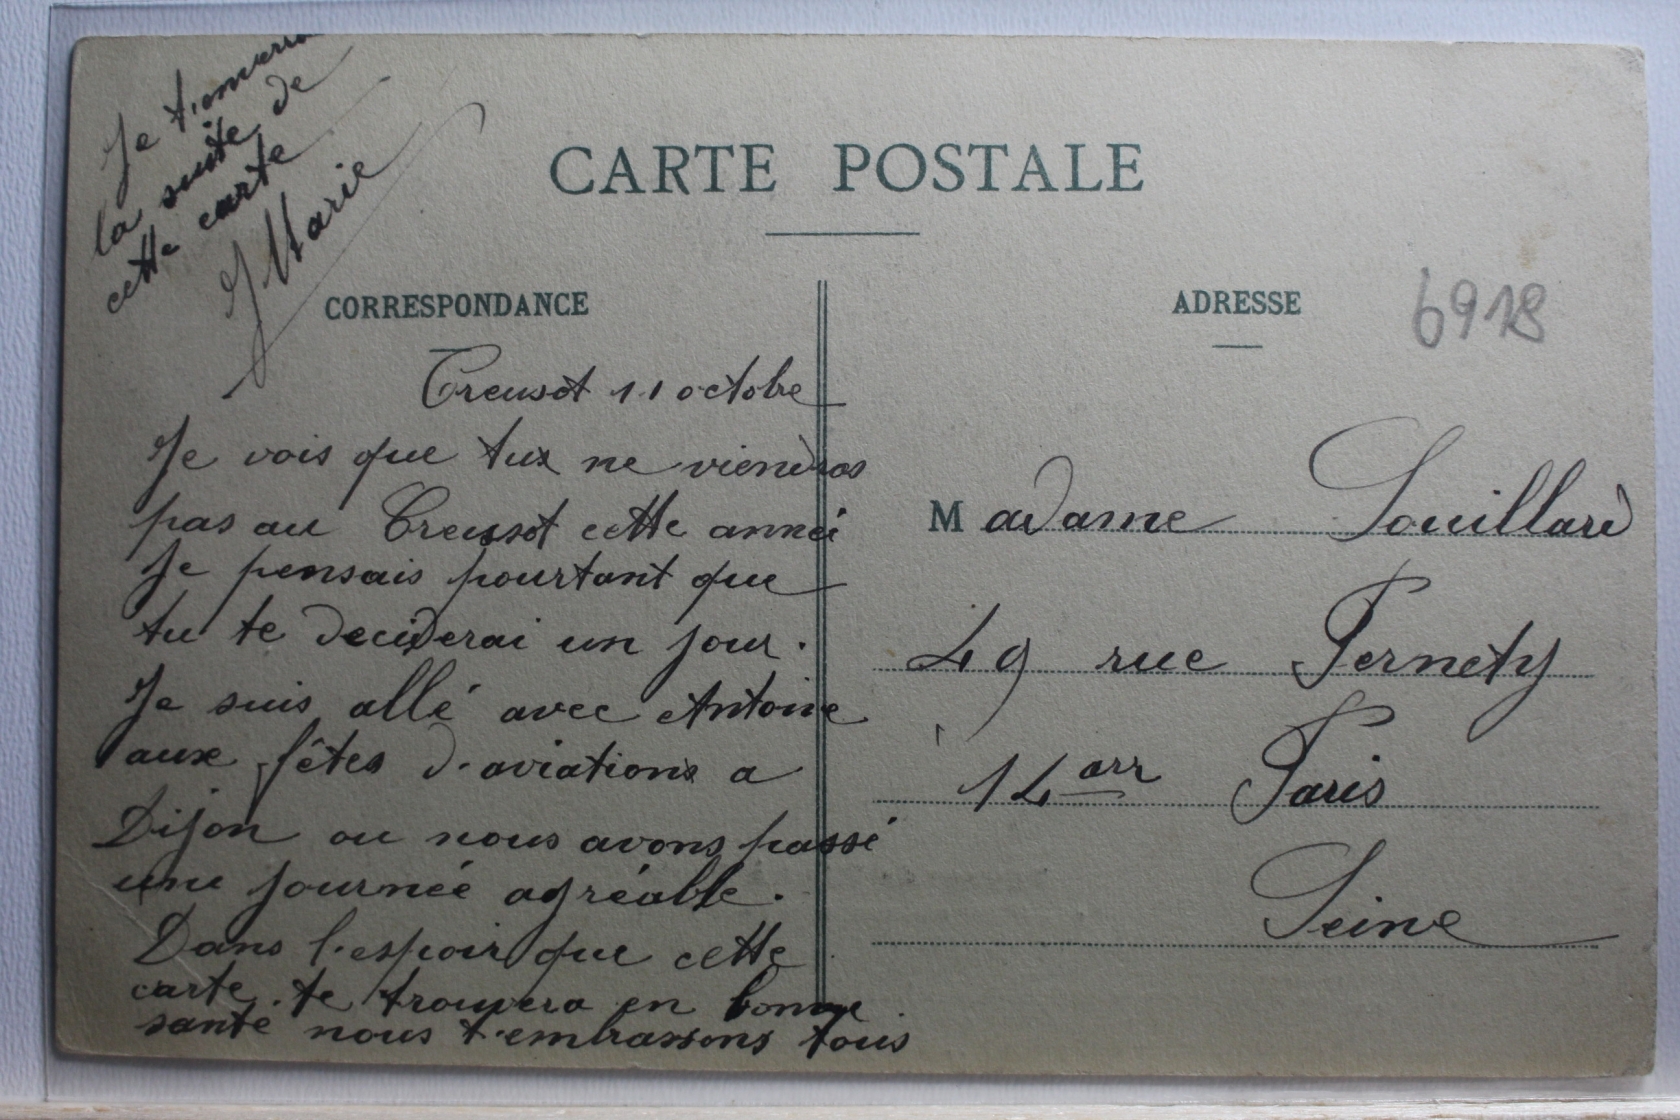 Je t'enverra
la suite de
cette carte
Marie
CARTE POSTALE
CORRESPONDANCE
Creusot 11 octobre
Je vois que tux ne viendras
pas au Creusot cette anneé
Je pensais pourtant que
tu te deciderai un jour.
Je suis allé avec Antoine
aux fêtes d'aviations a
Dijon ou nous avons passé
une journée agréable.
Dans l'espoir que cette
carte te trouvera en bonne
santé nous t'embrassons tous
ADRESSE
6918
Madame Souillard
49 rue Pernety
14 arr Paris
Seine